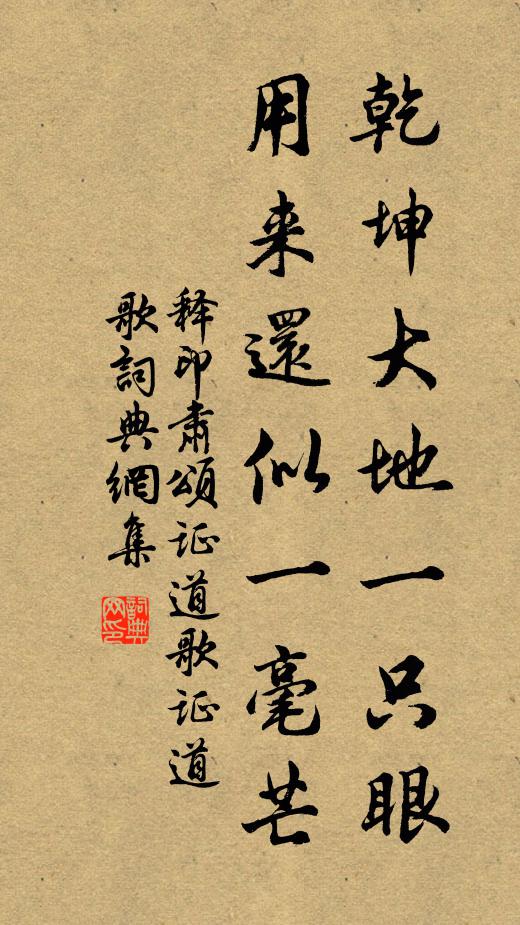 乾坤大地一只眼
用来還似一毫芒
释印肃頌证道歌证道
歌詞典網集
詞典网印